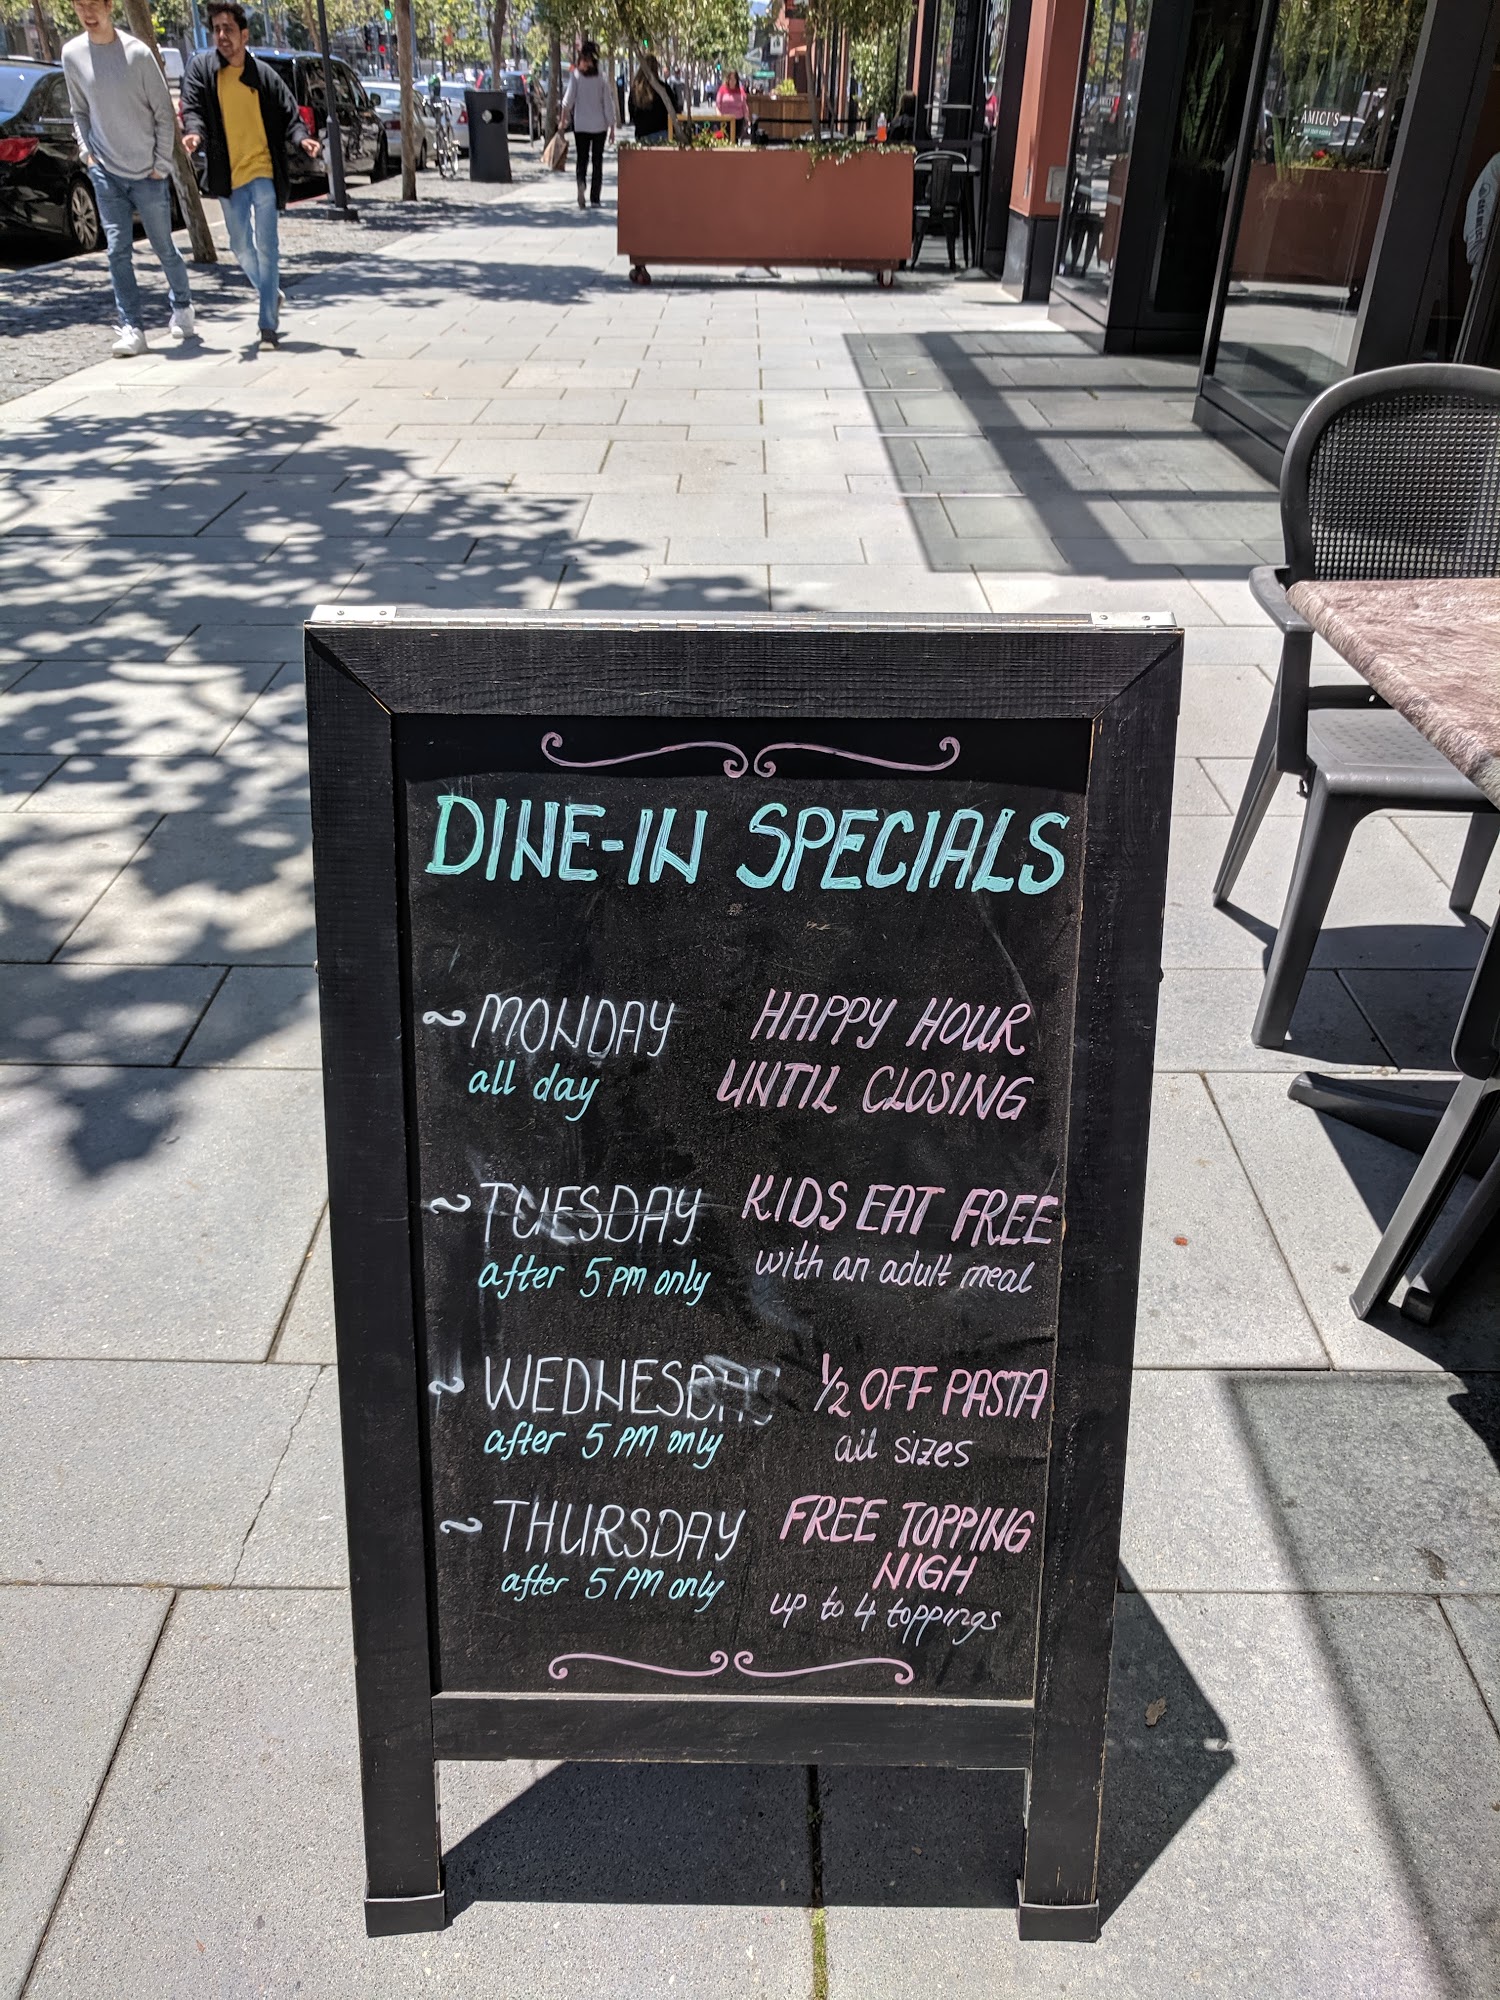 AMICI'S
DINE-IN SPECIALS
~ MONDAY HAPPY HOUR
all day UNTIL CLOSING
~ TUESDAY KIDS EAT FREE
after 5 PM only with an adult meal
~ WEDNESDAY 1/2 OFF PASTA
after 5 PM only all sizes
~ THURSDAY FREE TOPPING
NIGH
after 5 PM only up to 4 toppings